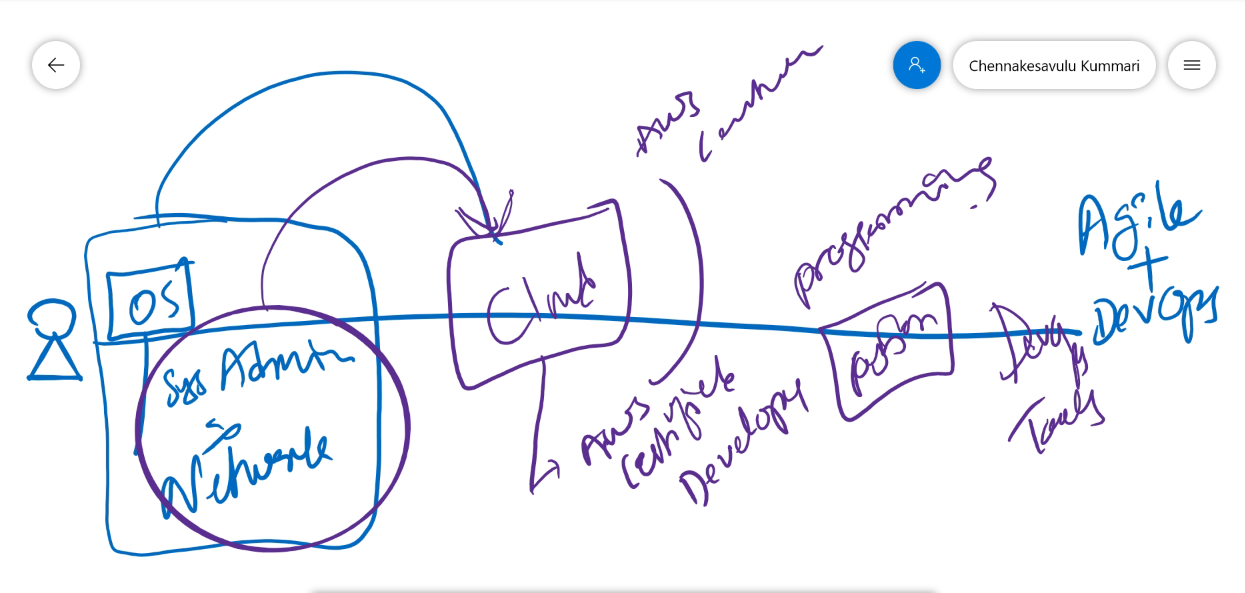 Chennakesavulu Kummari
AWS
OS
Sys Admin
Network
Cloud
AWS
Certified
Developer
programming
python
Devops
Tools
Agile
+
DevOps